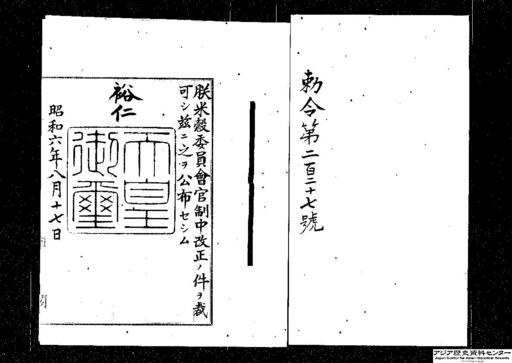 勅令第二百二十七號
朕米穀委員會官制中改正ノ件ヲ裁
可シ茲ニ之ヲ公布セシム
裕仁
天皇御璽
昭和六年八月十七日
アジア歴史資料センター
Japan Center for Asian Historical Records